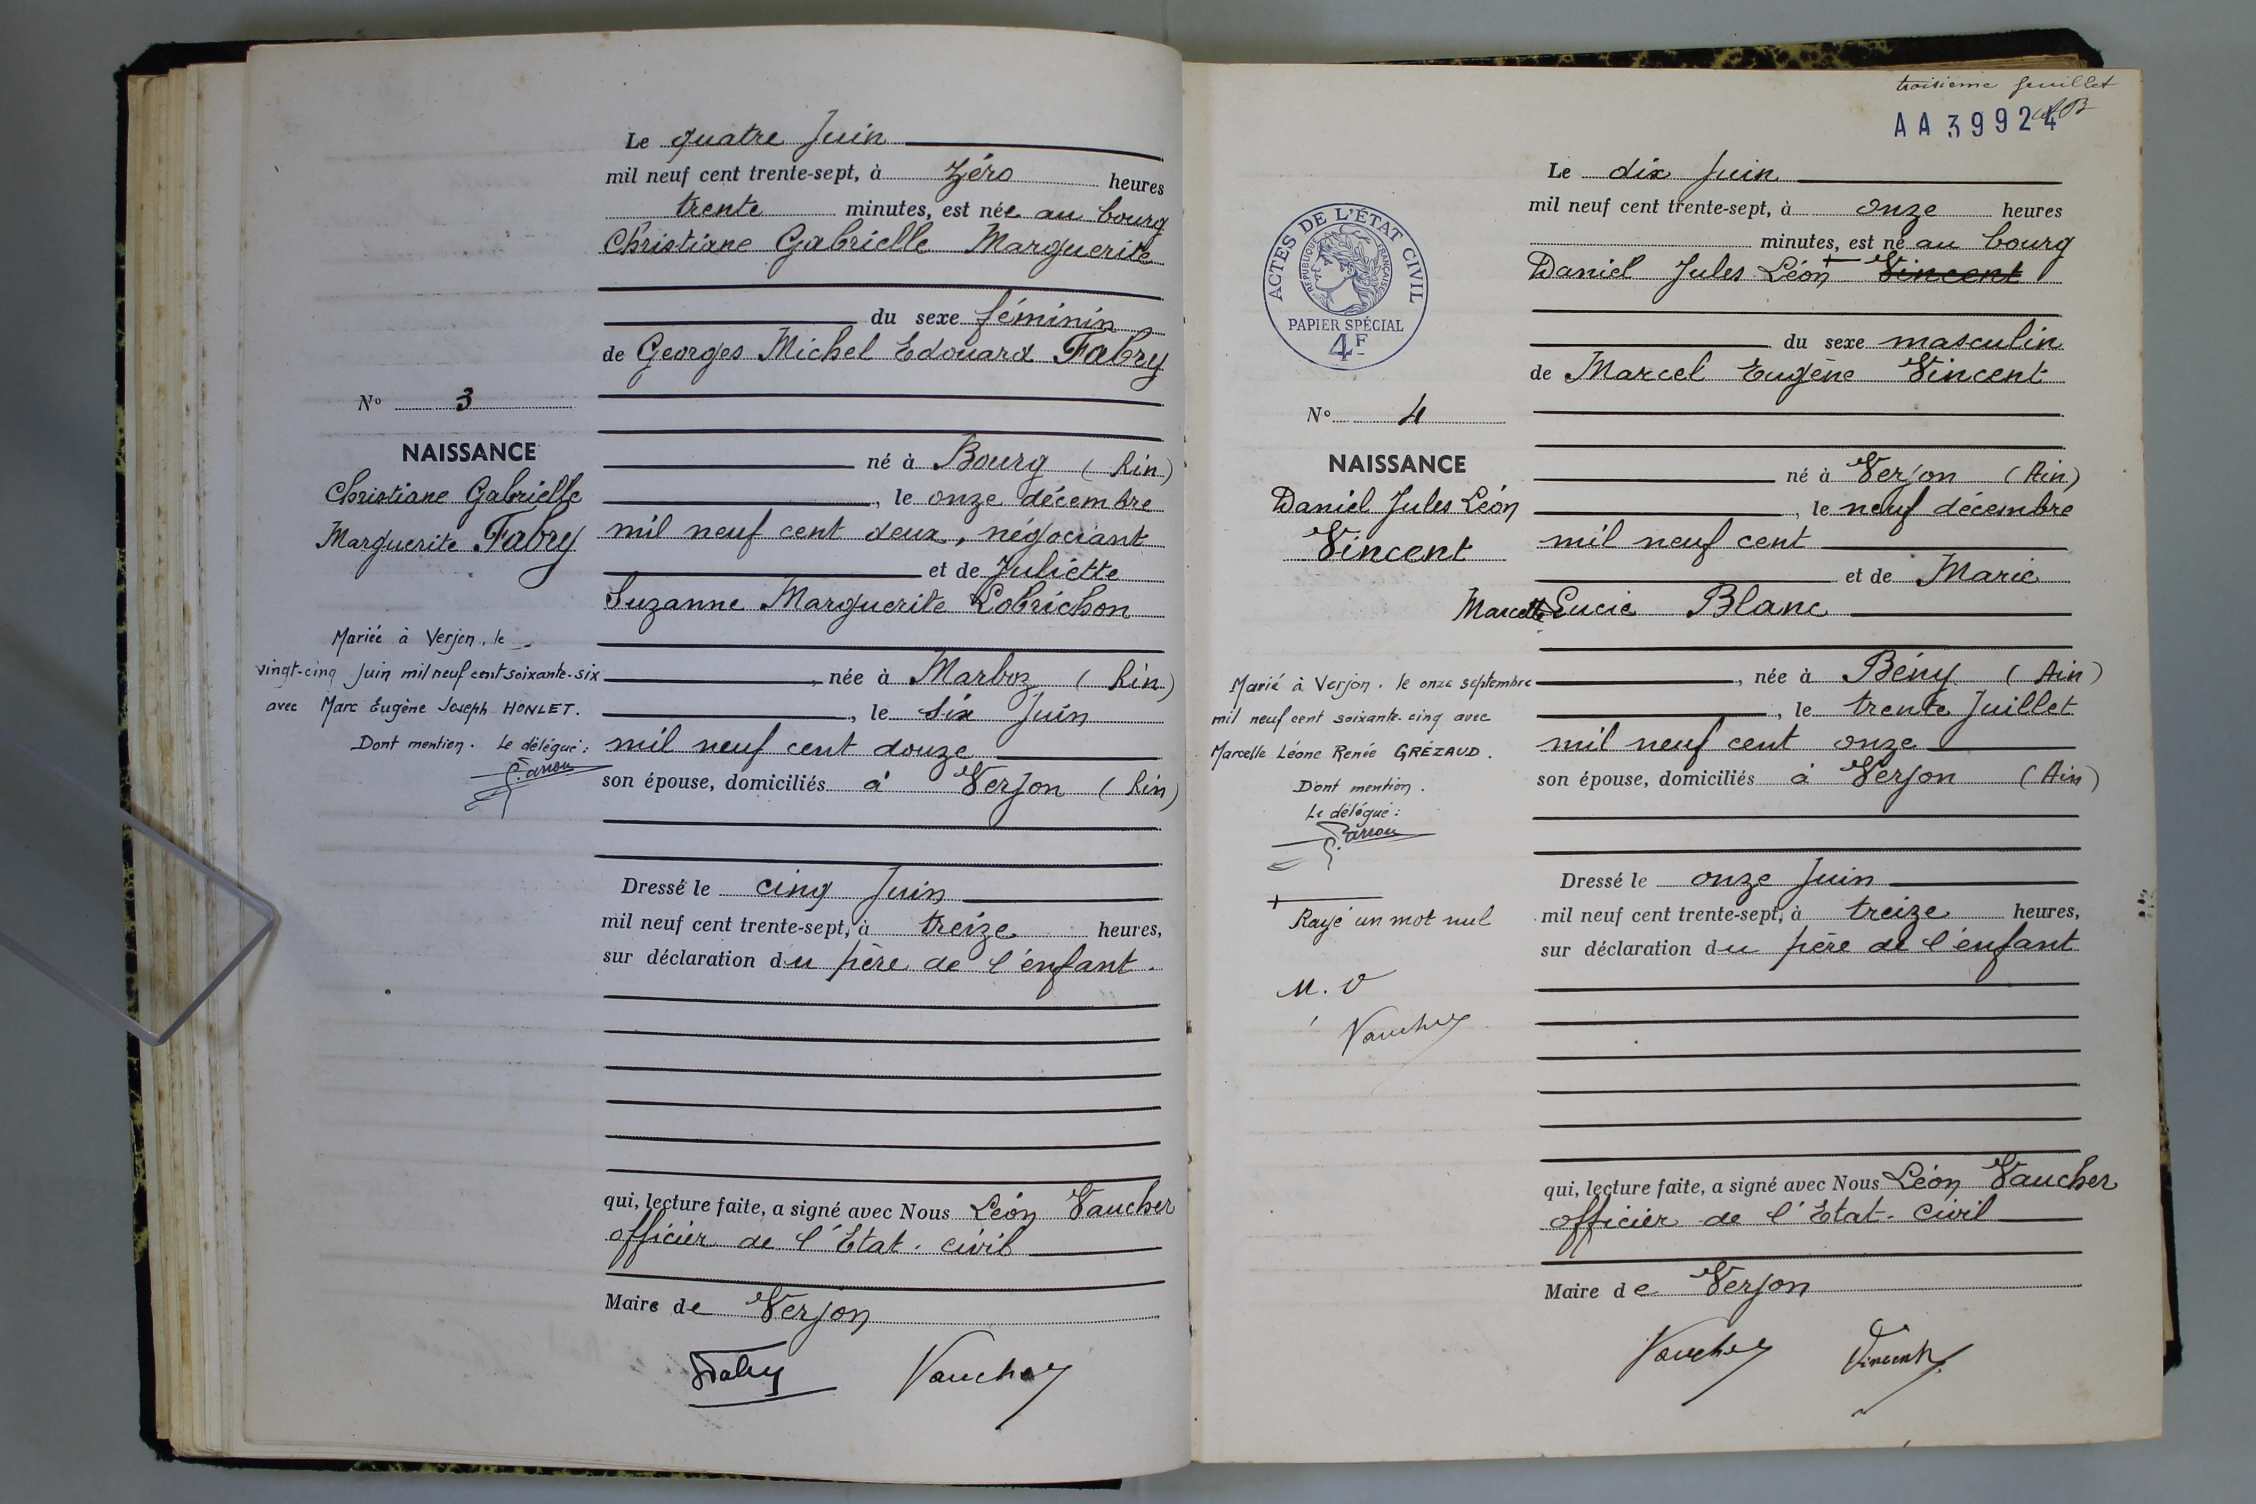 Le quatre Juin
mil neuf cent trente-sept, à Zéro heures
trente minutes, est née au bourg
Christiane Gabrielle Marguerite
du sexe féminin
de Georges Michel Edouard Fabry
N° 3
NAISSANCE
Christiane Gabrielle
Marguerite Fabry
né à Bourg (Ain)
, le onze décembre
mil neuf cent deux, négociant
et de Juliette
Suzanne Marguerite Lobrichon
Mariée à Verjon, le
vingt-cinq Juin mil neuf cent soixante-six
avec Marc Eugène Joseph HONLET.
Dont mention. Le délégué :
, née à Marboz (Ain)
, le six Juin
mil neuf cent douze
son épouse, domiciliés à Verjon (Ain)
Dressé le cinq Juin
mil neuf cent trente-sept, à treize heures,
sur déclaration du père de l'enfant.
qui, lecture faite, a signé avec Nous Léon Vaucher
officier de l'Etat-civil
Maire de Verjon
Fabry Vaucher
troisième feuillet
AA 39924
ACTES DE L'ÉTAT CIVIL
RÉPUBLIQUE FRANÇAISE
PAPIER SPÉCIAL
4F
Le dix Juin
mil neuf cent trente-sept, à onze heures
minutes, est né au bourg
Daniel Jules Léon + Vincent
du sexe masculin
de Marcel Eugène Vincent
N° 4
NAISSANCE
Daniel Jules Léon
Vincent
né à Verjon (Ain)
, le neuf décembre
mil neuf cent
et de Marie
Marcelle Lucie Blanc
Marié à Verjon. le onze septembre
mil neuf cent soixante-cinq avec
Marcelle Léone Renée GRÉZAUD.
Dont mention.
Le délégué :
, née à Bény (Ain)
, le trente Juillet
mil neuf cent onze
son épouse, domiciliés à Verjon (Ain)
+
Rayé un mot nul
M. V
Vaucher
Dressé le onze Juin
mil neuf cent trente-sept, à treize heures,
sur déclaration du père de l'enfant
qui, lecture faite, a signé avec Nous Léon Vaucher
officier de l'Etat-civil
Maire de Verjon
Vaucher Vincent